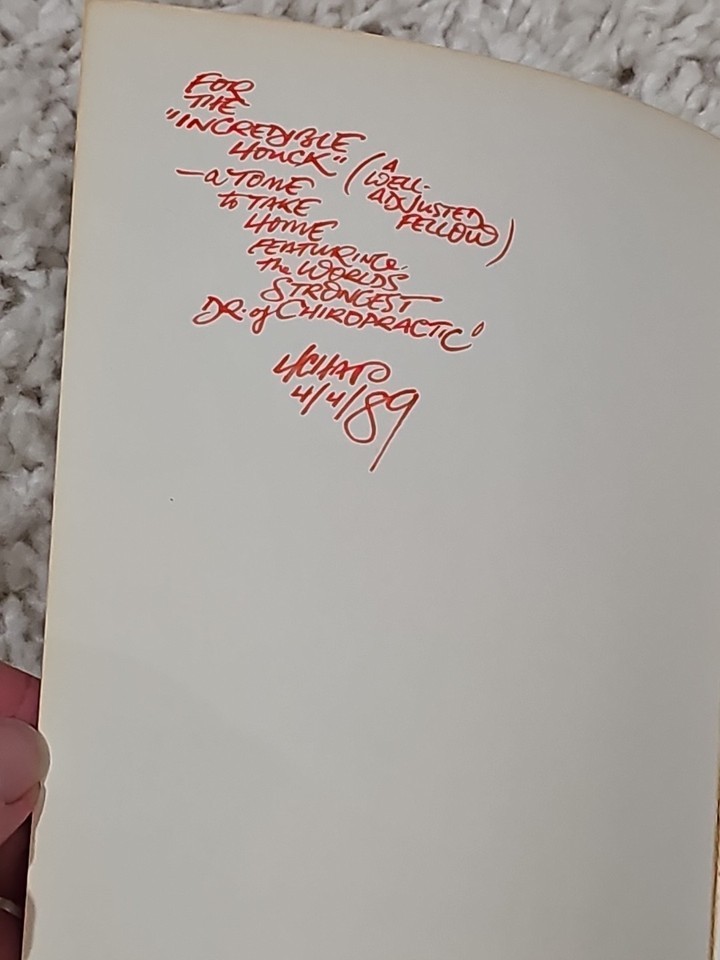 FOR
THE
"INCREDIBLE
HOUCK" (A
WELL-
ADJUSTED
FELLOW)
—a TOME
to TAKE
HOME
FEATURING:
the WORLD'S
STRONGEST
DR. of CHIROPRACTIC!
4/4/89